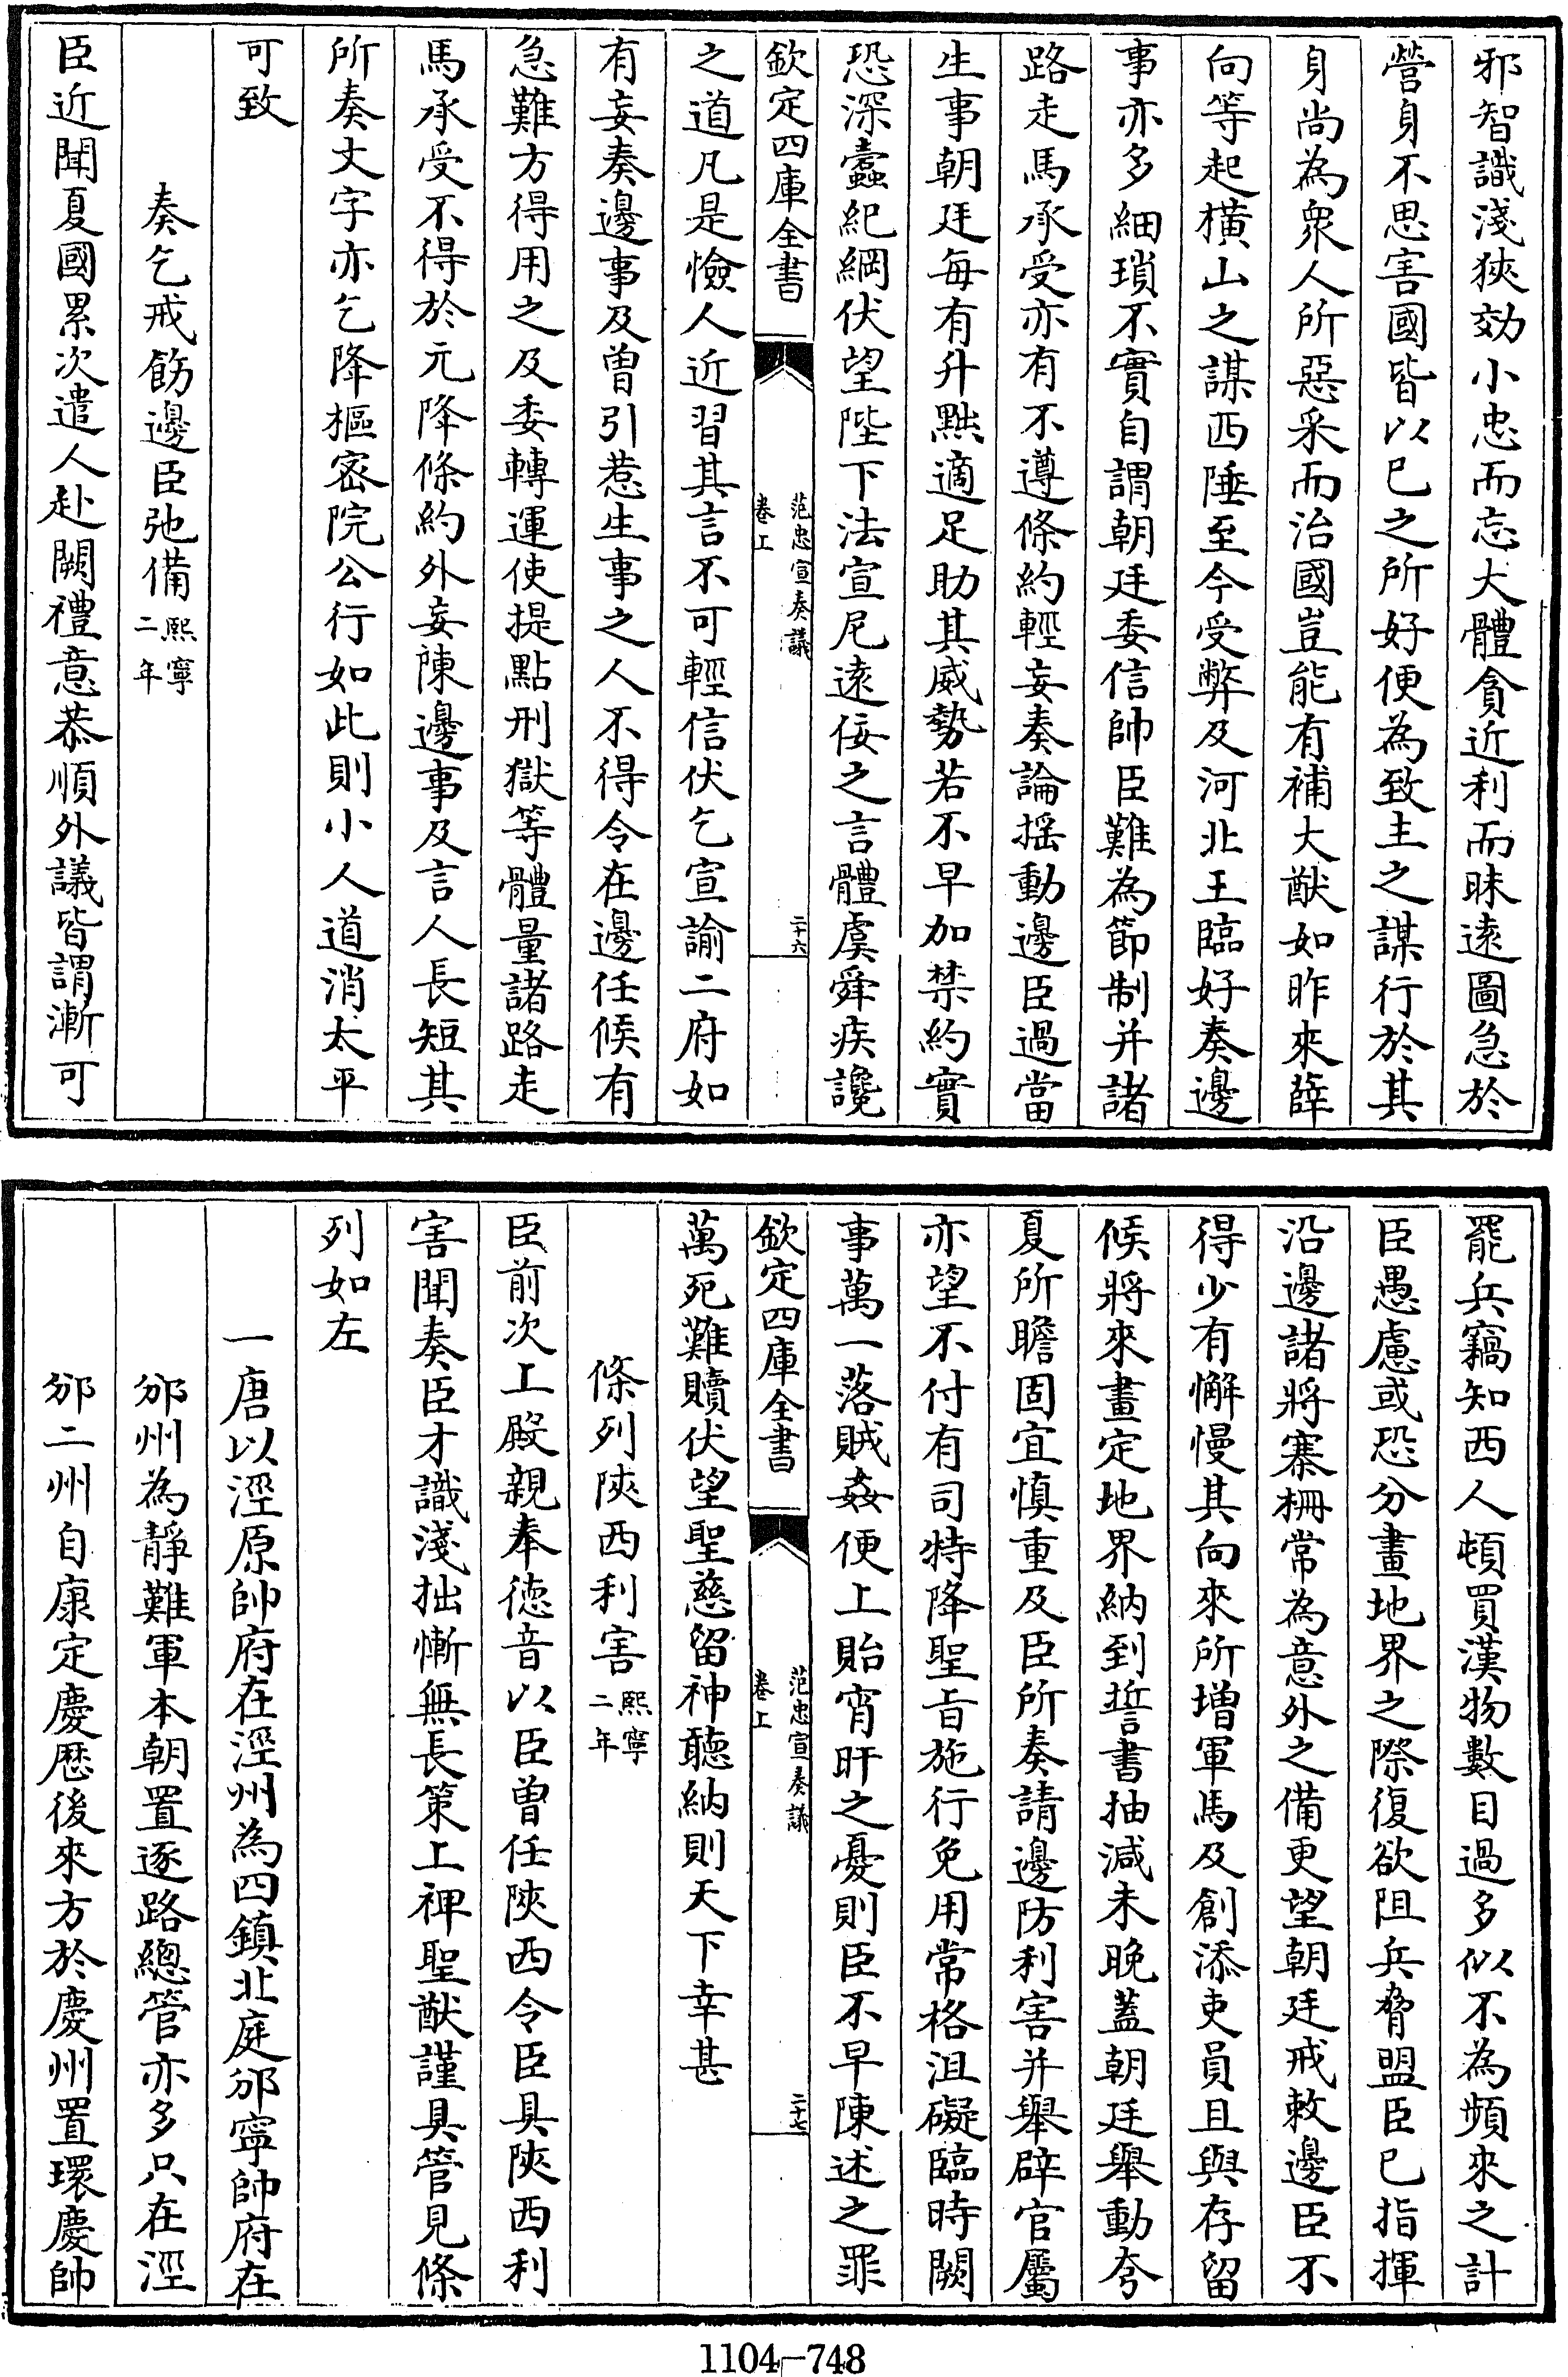 邪智識淺狹効小忠而忘大體貪近利而昧逺圖急於
營身不思害國皆以已之所好便為致主之謀行於其
身尚為衆人所惡采而治國豈能有補大猷如昨來薛
向等起橫山之謀西陲至今受弊及河北王臨好奏邊
事亦多細瑣不實自謂朝廷委信帥臣難為節制并諸
路走馬承受亦有不遵條約輕妄奏論揺動邊臣過當
生事朝廷每有升黜適足助其威勢若不早加禁約實
恐深蠹紀綱伏望陛下法宣尼逺佞之言體虞舜疾讒
欽定四庫全書
范忠宣奏議
卷上
二十六
之道凡是憸人近習其言不可輕信伏乞宣諭二府如
有妄奏邊事及曾引惹生事之人不得令在邊任候有
急難方得用之及委轉運使提點刑獄等體量諸路走
馬承受不得於元降條約外妄陳邊事及言人長短其
所奏文字亦乞降樞密院公行如此則小人道消太平
可致
奏乞戒飭邊臣弛備熙寧二年
臣近聞夏國累次遣人赴闕禮意恭順外議皆謂漸可
罷兵竊知西人頓買漢物數目過多似不為頻來之計
臣愚慮或恐分畫地界之際復欲阻兵脅盟臣已指揮
沿邊諸將寨柵常為意外之備更望朝廷戒敕邊臣不
得少有懈慢其向來所増軍馬及創添吏員且與存留
候將來畫定地界納到誓書抽減未晚蓋朝廷舉動夸
夏所瞻固宜慎重及臣所奏請邊防利害并舉辟官屬
亦望不付有司特降聖旨施行免用常格沮礙臨時闕
事萬一落賊姦便上貽宵旰之憂則臣不早陳述之罪
欽定四庫全書
范忠宣奏議
卷上
二十七
萬死難贖伏望聖慈留神聽納則天下幸甚
條列陜西利害熙寧二年
臣前次上殿親奉德音以臣曾任陜西令臣具陜西利
害聞奏臣才識淺拙慚無長策上裨聖猷謹具管見條
列如左
一唐以涇原帥府在涇州為四鎮北庭邠寧帥府在
邠州為靜難軍本朝置逐路總管亦多只在涇
邠二州自康定慶厯後來方於慶州置環慶帥
1104-748